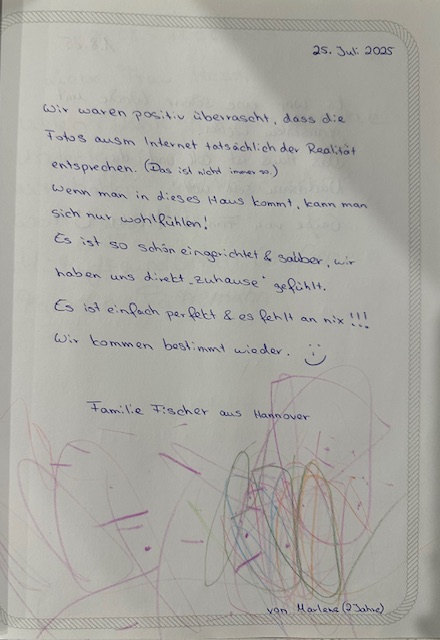 25. Juli 2025
Wir waren positiv überrascht, dass die
Fotos ausm Internet tatsächlich der Realität
entsprechen. (Das ist nicht immer so.)
Wenn man in dieses Haus kommt, kann man
sich nur wohlfühlen!
Es ist so schön eingerichtet & sauber, wir
haben uns direkt „zuhause" gefühlt.
Es ist einfach perfekt & es fehlt an nix !!!
Wir kommen bestimmt wieder. :)
Familie Fischer aus Hannover
von Marlene (2 Jahre)